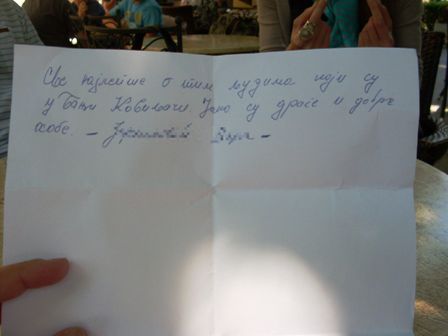 Све најлепше о тим људима који су
у Бањи Ковиљачи. Јако су драге и добре
особе. -